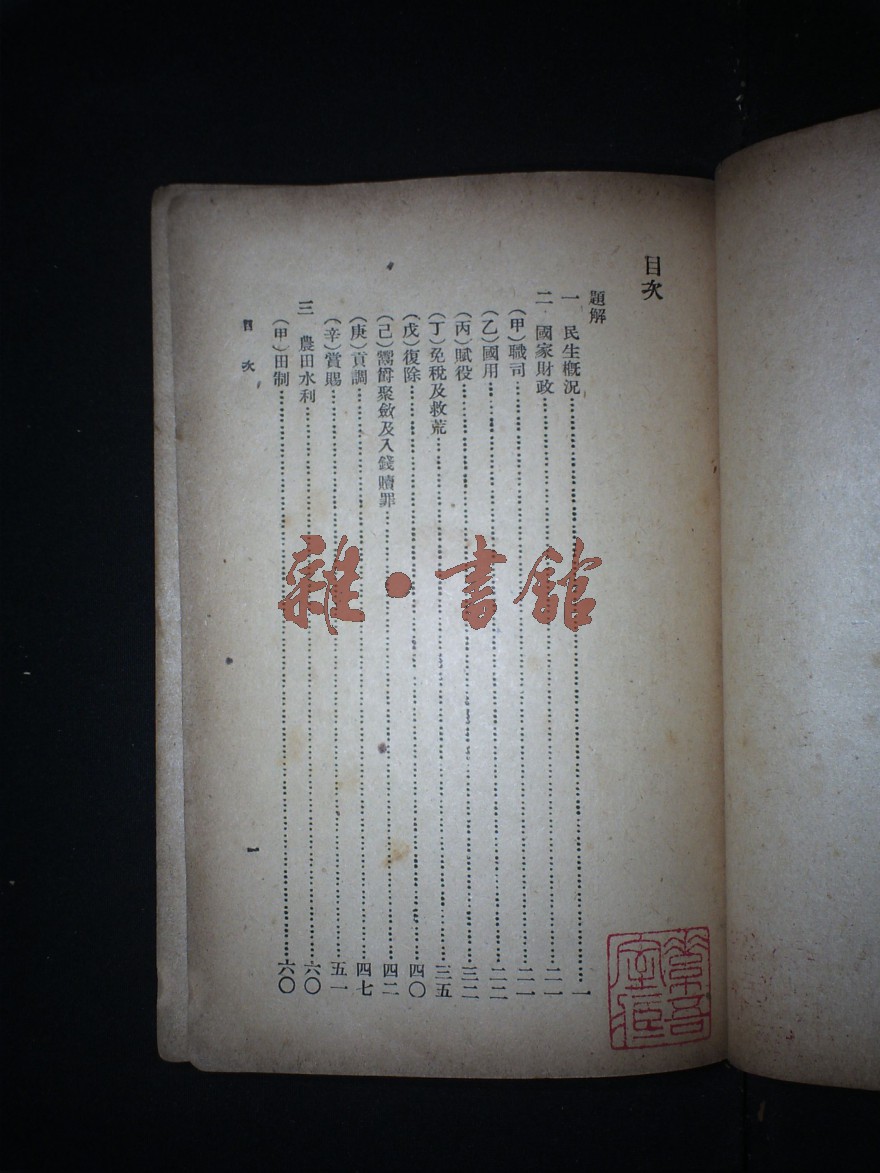 目次
題解
一　民生概況……一
二　國家財政……二一
（甲）職司……二一
（乙）國用……二二
（丙）賦役……三二
（丁）免稅及救荒……三五
（戊）復除……四〇
（己）鬻爵聚斂及入錢贖罪……四二
（庚）貢調……四七
（辛）賞賜……五一
三　農田水利……六〇
（甲）田制……六〇
目次　一
雜·書館